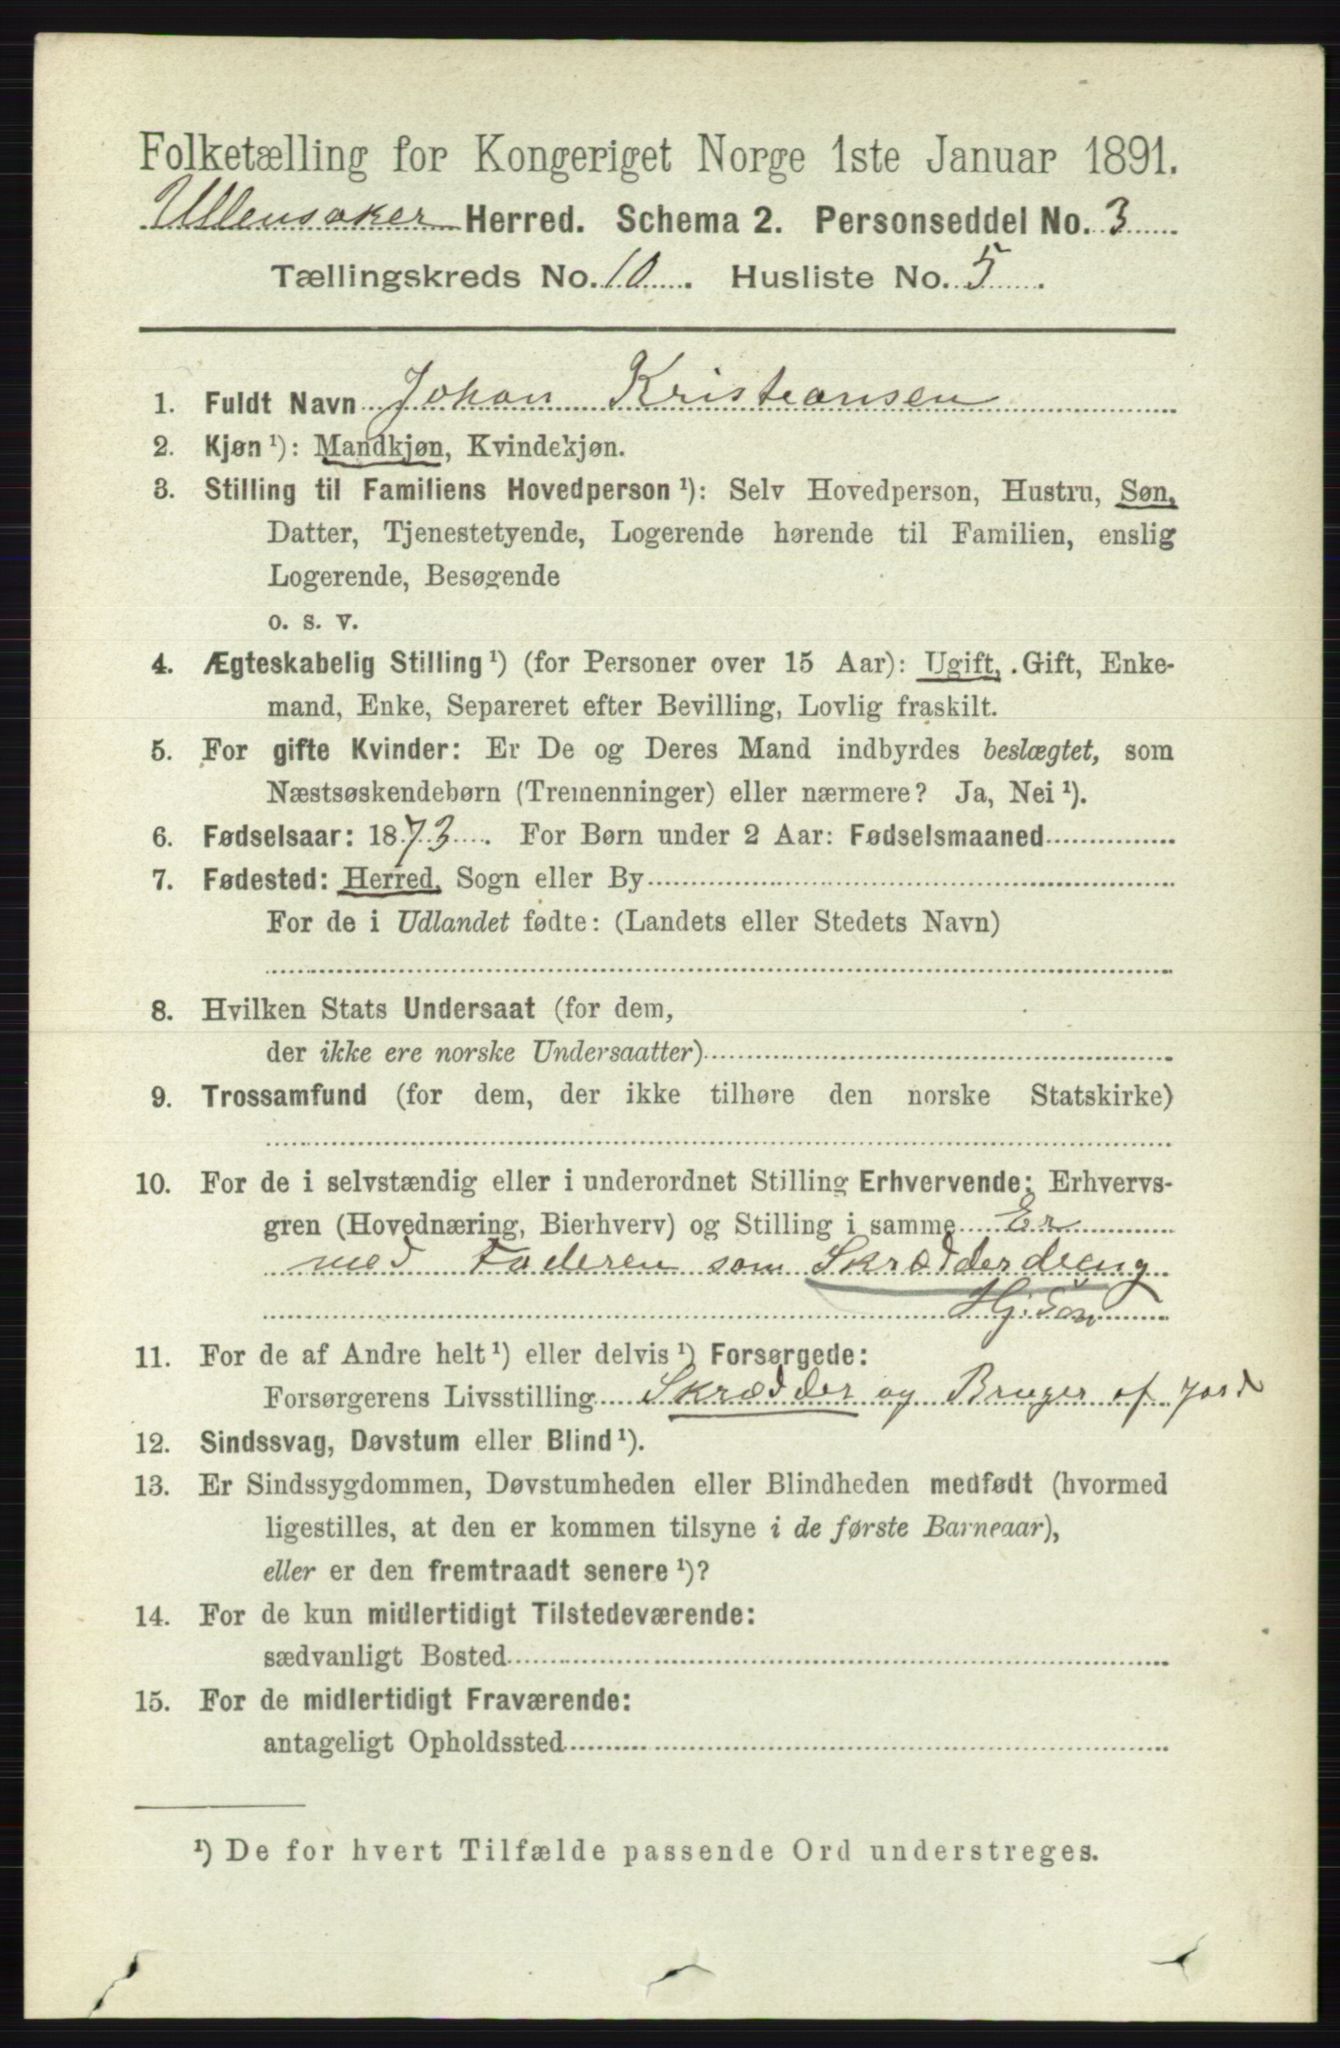 Folketælling for Kongeriget Norge 1ste Januar 1891.
Ullensaker Herred. Schema 2. Personseddel No. 3
Tællingskreds No. 10. Husliste No. 5.
1. Fuldt Navn Johan Kristiansen
2. Kjøn ¹): Mandkjøn, Kvindekjøn.
3. Stilling til Familiens Hovedperson ¹): Selv Hovedperson, Hustru, Søn,
Datter, Tjenestetyende, Logerende hørende til Familien, enslig
Logerende, Besøgende
o. s. v.
4. Ægteskabelig Stilling ¹) (for Personer over 15 Aar): Ugift, Gift, Enke-
mand, Enke, Separeret efter Bevilling, Lovlig fraskilt.
5. For gifte Kvinder: Er De og Deres Mand indbyrdes beslægtet, som
Næstsøskendebørn (Tremenninger) eller nærmere? Ja, Nei ¹).
6. Fødselsaar: 1873. For Børn under 2 Aar: Fødselsmaaned
7. Fødested: Herred, Sogn eller By
For de i Udlandet fødte: (Landets eller Stedets Navn)
8. Hvilken Stats Undersaat (for dem,
der ikke ere norske Undersaatter)
9. Trossamfund (for dem, der ikke tilhøre den norske Statskirke)
10. For de i selvstændig eller i underordnet Stilling Erhvervende: Erhvervs-
gren (Hovednæring, Bierhverv) og Stilling i samme Er
med Faderen som Skrædderdreng
Hj: Søn
11. For de af Andre helt ¹) eller delvis ¹) Forsørgede:
Forsørgerens Livsstilling Skrædder og Bruger af Jord
12. Sindssvag, Døvstum eller Blind ¹).
13. Er Sindssygdommen, Døvstumheden eller Blindheden medfødt (hvormed
ligestilles, at den er kommen tilsyne i de første Barneaar),
eller er den fremtraadt senere ¹)?
14. For de kun midlertidigt Tilstedeværende:
sædvanligt Bosted
15. For de midlertidigt Fraværende:
antageligt Opholdssted
¹) De for hvert Tilfælde passende Ord understreges.